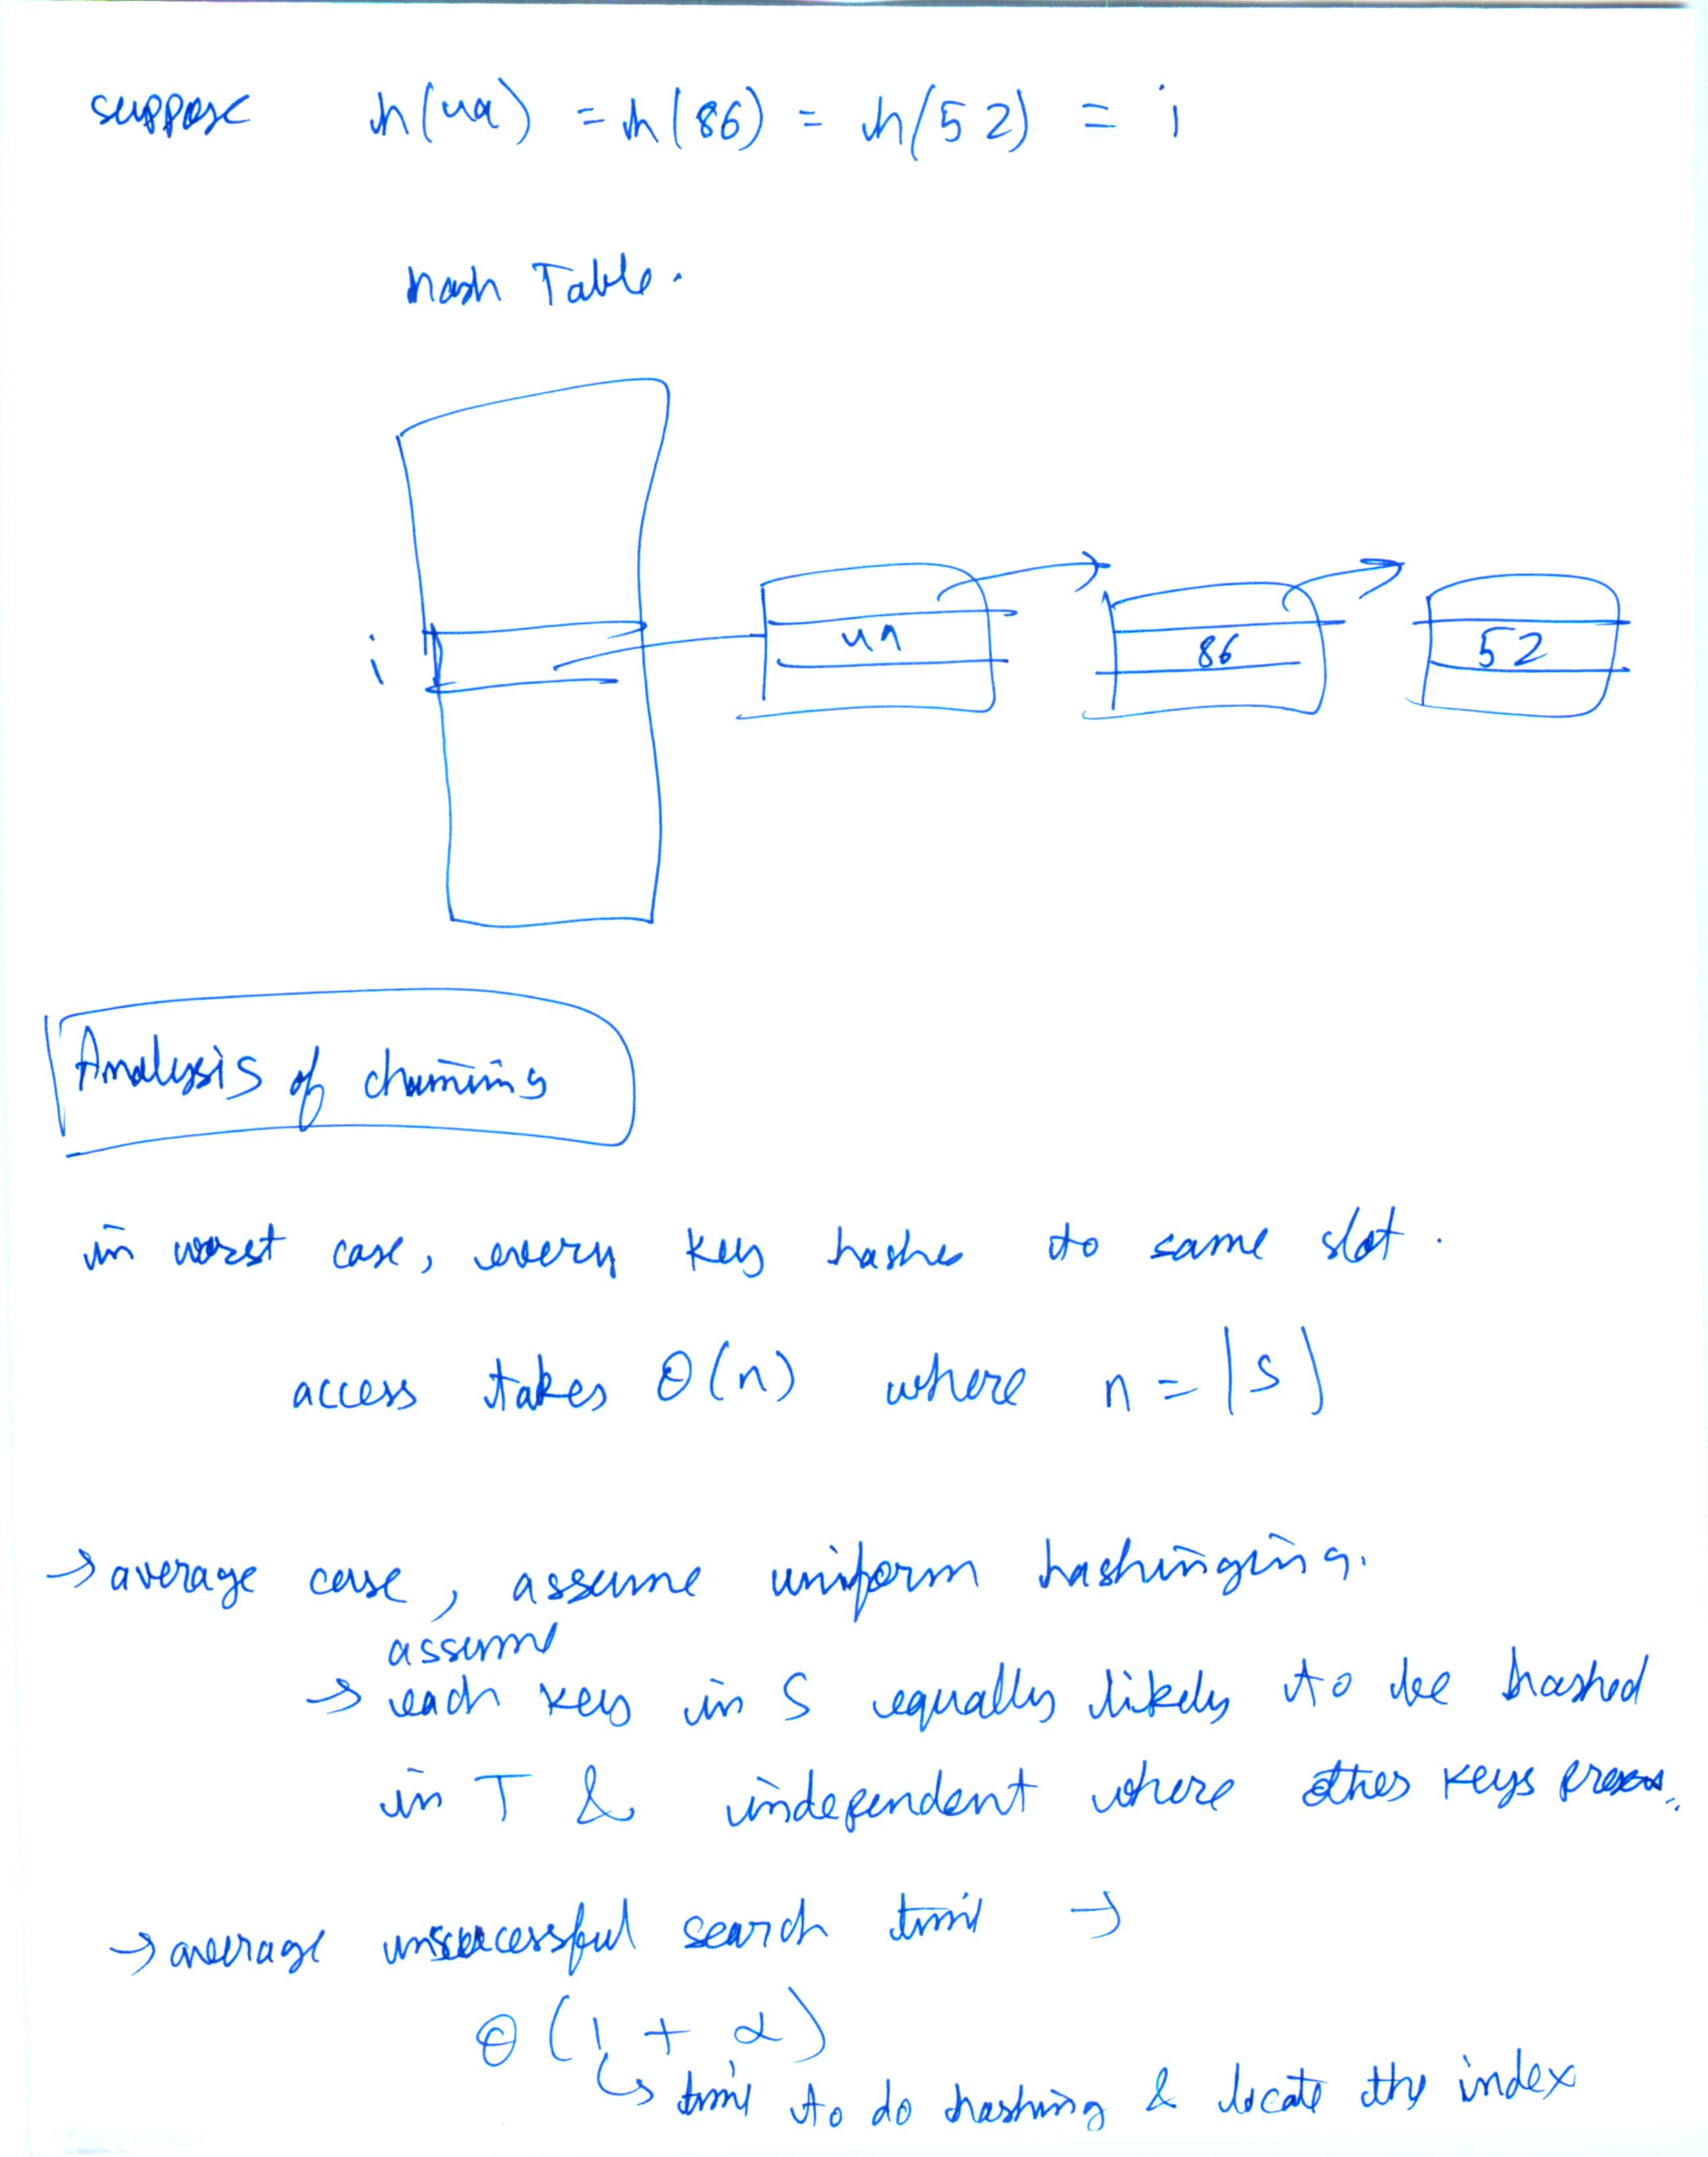 suppose h(49) = h(86) = h(52) = i
hash Table.
i 49 86 52
Analysis of chaining
in worst case, every key hashes to same slot.
access takes Θ(n) where n = |S|
→ average case, assume uniform hashinging.
assume
→ each key in S equally likely to be hashed
in T & independent where other keys
→ average unsuccessful search time →
Θ(1 + α)
↳ time to do hashing & locate the index